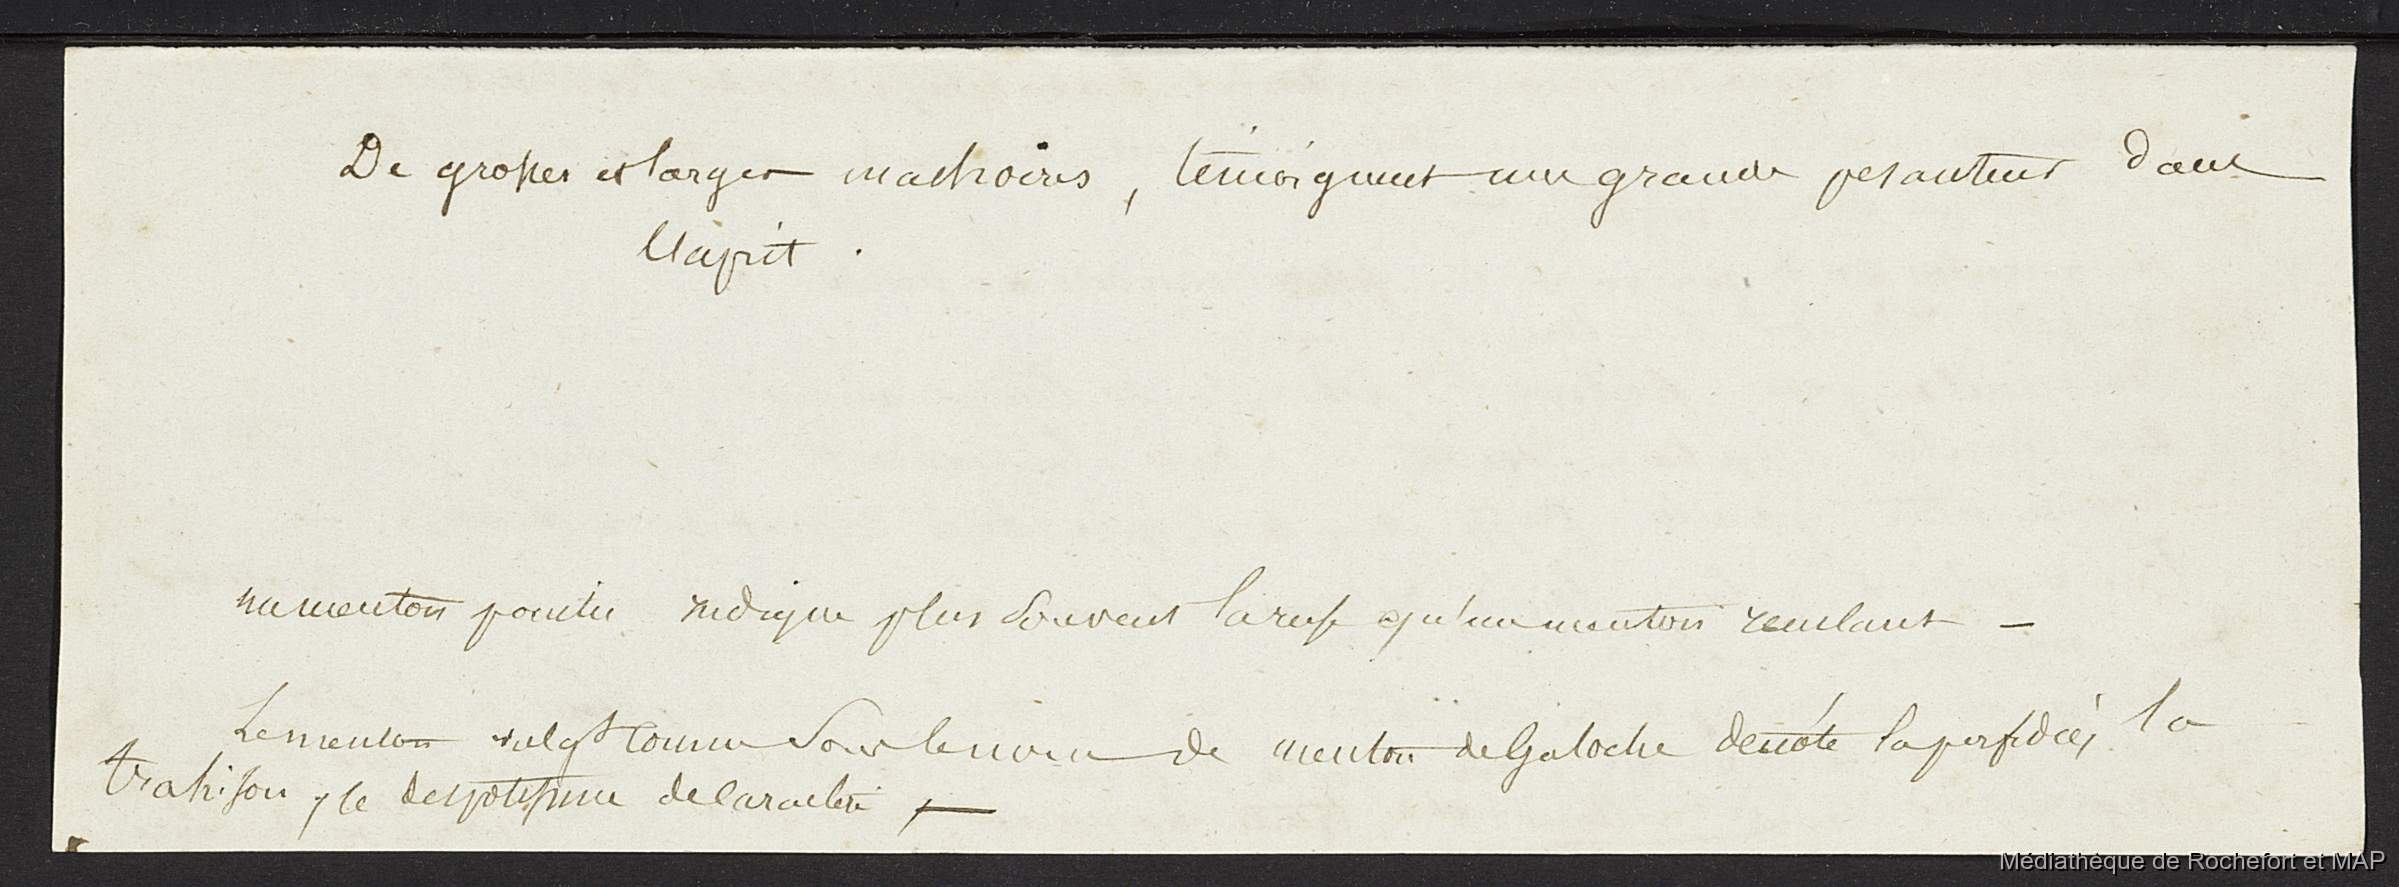 De grosses et larges machoires, témoignent une grande pesanteur dans
l'esprit.
un menton pointu indique plus souvent la ruse qu'un menton rentrant —
Le menton vulg^t connu sous le nom de menton de Galoche denote la perfidie, la
trahison, le despotisme de caractère, —
Médiathèque de Rochefort et MAP